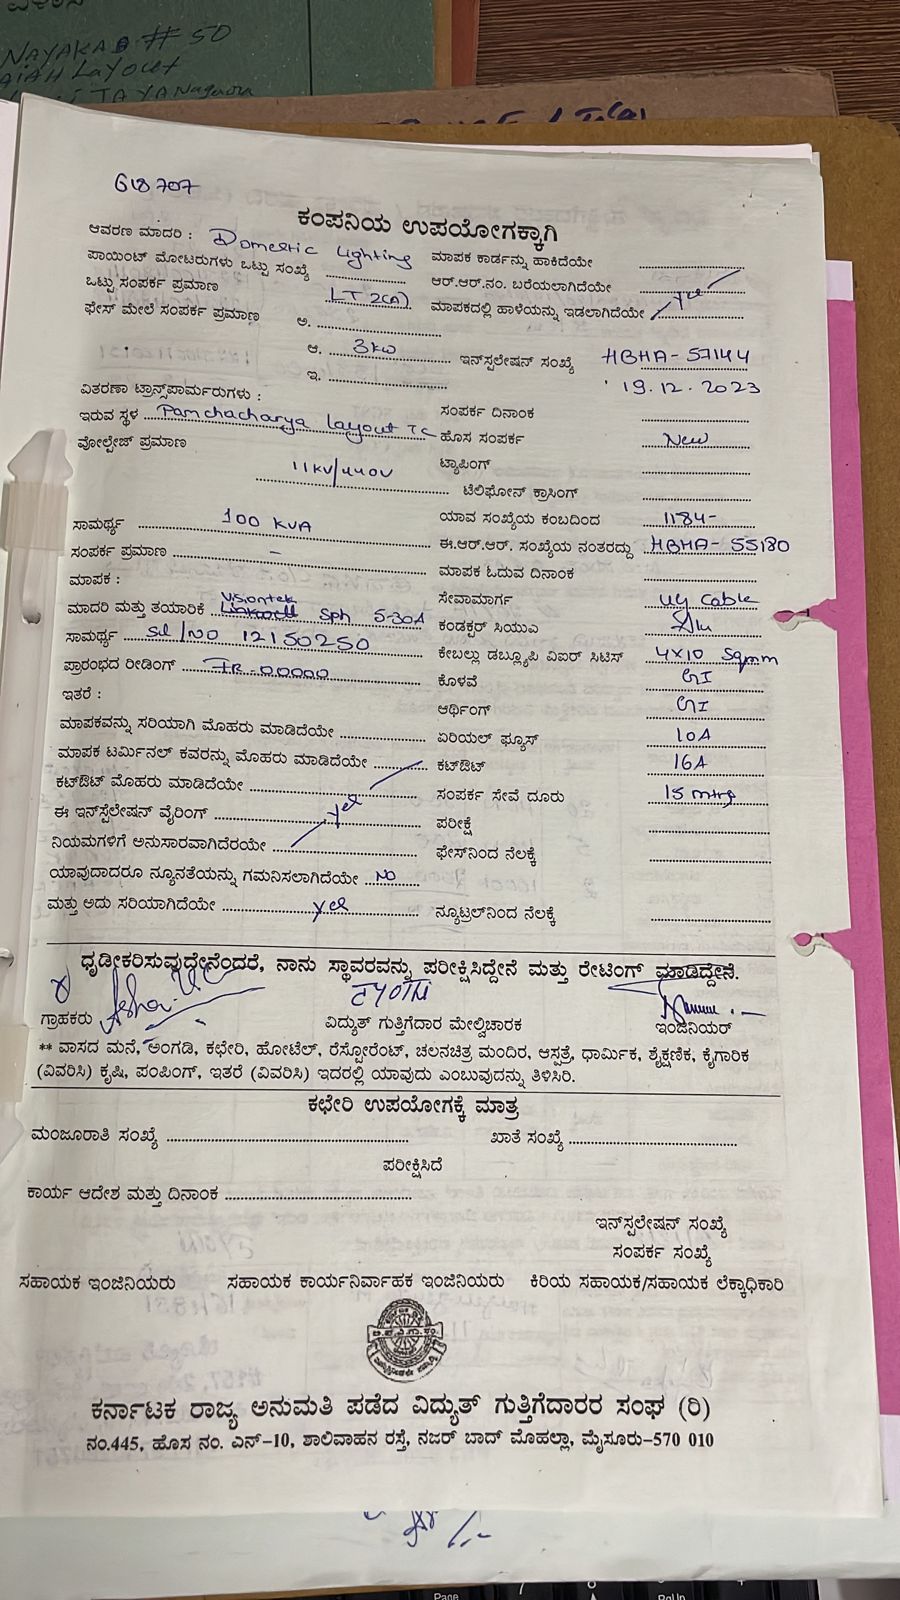 NAYAKA # 50
AIAH Layout
TAYANagara
618707
ಕಂಪನಿಯ ಉಪಯೋಗಕ್ಕಾಗಿ
ಆವರಣ ಮಾದರಿ : Domestic Lighting ಮಾಪಕ ಕಾರ್ಡನ್ನು ಹಾಕಿದೆಯೇ
ಪಾಯಿಂಟ್ ಮೋಟರುಗಳು ಒಟ್ಟು ಸಂಖ್ಯೆ ಆರ್.ಆರ್.ನಂ. ಬರೆಯಲಾಗಿದೆಯೇ yes
ಒಟ್ಟು ಸಂಪರ್ಕ ಪ್ರಮಾಣ LT 2(A) ಮಾಪಕದಲ್ಲಿ ಹಾಳೆಯನ್ನು ಇಡಲಾಗಿದೆಯೇ
ಫೇಸ್ ಮೇಲೆ ಸಂಪರ್ಕ ಪ್ರಮಾಣ ಅ.
ಆ. 3kw ಇನ್‌ಸ್ಪಲೇಷನ್ ಸಂಖ್ಯೆ HBHA-57144
ಇ. 19.12.2023
ವಿತರಣಾ ಟ್ರಾನ್ಸ್‌ಪಾರ್ಮರುಗಳು :
ಇರುವ ಸ್ಥಳ Panchacharya Layout TC ಸಂಪರ್ಕ ದಿನಾಂಕ
ವೋಲ್ಟೇಜ್ ಪ್ರಮಾಣ ಹೊಸ ಸಂಪರ್ಕ New
11KV/440V ಟ್ಯಾಪಿಂಗ್
ಟೆಲಿಫೋನ್ ಕ್ರಾಸಿಂಗ್
ಸಾಮರ್ಥ್ಯ 100 KVA ಯಾವ ಸಂಖ್ಯೆಯ ಕಂಬದಿಂದ 1184-
ಸಂಪರ್ಕ ಪ್ರಮಾಣ - ಈ.ಆರ್.ಆರ್. ಸಂಖ್ಯೆಯ ನಂತರದ್ದು HBHA-55180
ಮಾಪಕ : ಮಾಪಕ ಓದುವ ದಿನಾಂಕ
ಮಾದರಿ ಮತ್ತು ತಯಾರಿಕೆ Visiontek Sph 5-30A ಸೇವಾಮಾರ್ಗ UG Cable
ಸಾಮರ್ಥ್ಯ Sl/NO 12150250 ಕಂಡಕ್ಟರ್ ಸಿಯುಎ Alu
ಪ್ರಾರಂಭದ ರೀಡಿಂಗ್ IR 00000 ಕೇಬಲ್ಲು ಡಬ್ಲ್ಯೂಪಿ ವಿಐರ್ ಸಿಟಿಸ್ 4X10 Sqmm
ಇತರೆ : ಕೊಳವೆ GI
ಮಾಪಕವನ್ನು ಸರಿಯಾಗಿ ಮೊಹರು ಮಾಡಿದೆಯೇ ಆರ್ಥಿಂಗ್ GI
ಮಾಪಕ ಟರ್ಮಿನಲ್ ಕವರನ್ನು ಮೊಹರು ಮಾಡಿದೆಯೇ ಏರಿಯಲ್ ಫ್ಯೂಸ್ 10A
ಕಟ್‌ಔಟ್ ಮೊಹರು ಮಾಡಿದೆಯೇ ಕಟ್‌ಔಟ್ 16A
ಈ ಇನ್‌ಸ್ಟೆಲೇಷನ್ ವೈರಿಂಗ್ yes ಸಂಪರ್ಕ ಸೇವೆ ದೂರು 15 mtrs
ನಿಯಮಗಳಿಗೆ ಅನುಸಾರವಾಗಿದೆರಯೇ ಪರೀಕ್ಷೆ
ಯಾವುದಾದರೂ ನ್ಯೂನತೆಯನ್ನು ಗಮನಿಸಲಾಗಿದೆಯೇ NO ಫೇಸ್‌ನಿಂದ ನೆಲಕ್ಕೆ
ಮತ್ತು ಅದು ಸರಿಯಾಗಿದೆಯೇ yes ನ್ಯೂಟ್ರಲ್‌ನಿಂದ ನೆಲಕ್ಕೆ
ಧೃಡೀಕರಿಸುವುದೇನೆಂದರೆ, ನಾನು ಸ್ಥಾವರವನ್ನು ಪರೀಕ್ಷಿಸಿದ್ದೇನೆ ಮತ್ತು ರೇಟಿಂಗ್ ಮಾಡಿದ್ದೇನೆ.
JYOTHI
ಗ್ರಾಹಕರು ವಿದ್ಯುತ್ ಗುತ್ತಿಗೆದಾರ ಮೇಲ್ವಿಚಾರಕ ಇಂಜಿನಿಯರ್
** ವಾಸದ ಮನೆ, ಅಂಗಡಿ, ಕಛೇರಿ, ಹೋಟೆಲ್, ರೆಸ್ಟೋರೆಂಟ್, ಚಲನಚಿತ್ರ ಮಂದಿರ, ಆಸ್ಪತ್ರೆ, ಧಾರ್ಮಿಕ, ಶೈಕ್ಷಣಿಕ, ಕೈಗಾರಿಕ
(ವಿವರಿಸಿ) ಕೃಷಿ, ಪಂಪಿಂಗ್, ಇತರೆ (ವಿವರಿಸಿ) ಇದರಲ್ಲಿ ಯಾವುದು ಎಂಬುವುದನ್ನು ತಿಳಿಸಿರಿ.
ಕಛೇರಿ ಉಪಯೋಗಕ್ಕೆ ಮಾತ್ರ
ಮಂಜೂರಾತಿ ಸಂಖ್ಯೆ ಖಾತೆ ಸಂಖ್ಯೆ
ಪರೀಕ್ಷಿಸಿದೆ
ಕಾರ್ಯ ಆದೇಶ ಮತ್ತು ದಿನಾಂಕ
ಇನ್‌ಸ್ಪಲೇಷನ್ ಸಂಖ್ಯೆ
ಸಂಪರ್ಕ ಸಂಖ್ಯೆ
ಸಹಾಯಕ ಇಂಜಿನಿಯರು ಸಹಾಯಕ ಕಾರ್ಯನಿರ್ವಾಹಕ ಇಂಜಿನಿಯರು ಕಿರಿಯ ಸಹಾಯಕ/ಸಹಾಯಕ ಲೆಕ್ಕಾಧಿಕಾರಿ
ಕರ್ನಾಟಕ ರಾಜ್ಯ ಅನುಮತಿ ಪಡೆದ ವಿದ್ಯುತ್ ಗುತ್ತಿಗೆದಾರರ ಸಂಘ (ರಿ)
ನಂ.445, ಹೊಸ ನಂ. ಎನ್-10, ಶಾಲಿವಾಹನ ರಸ್ತೆ, ನಜರ್ ಬಾದ್ ಮೊಹಲ್ಲಾ, ಮೈಸೂರು-570 010
Page
7
8
PgUp